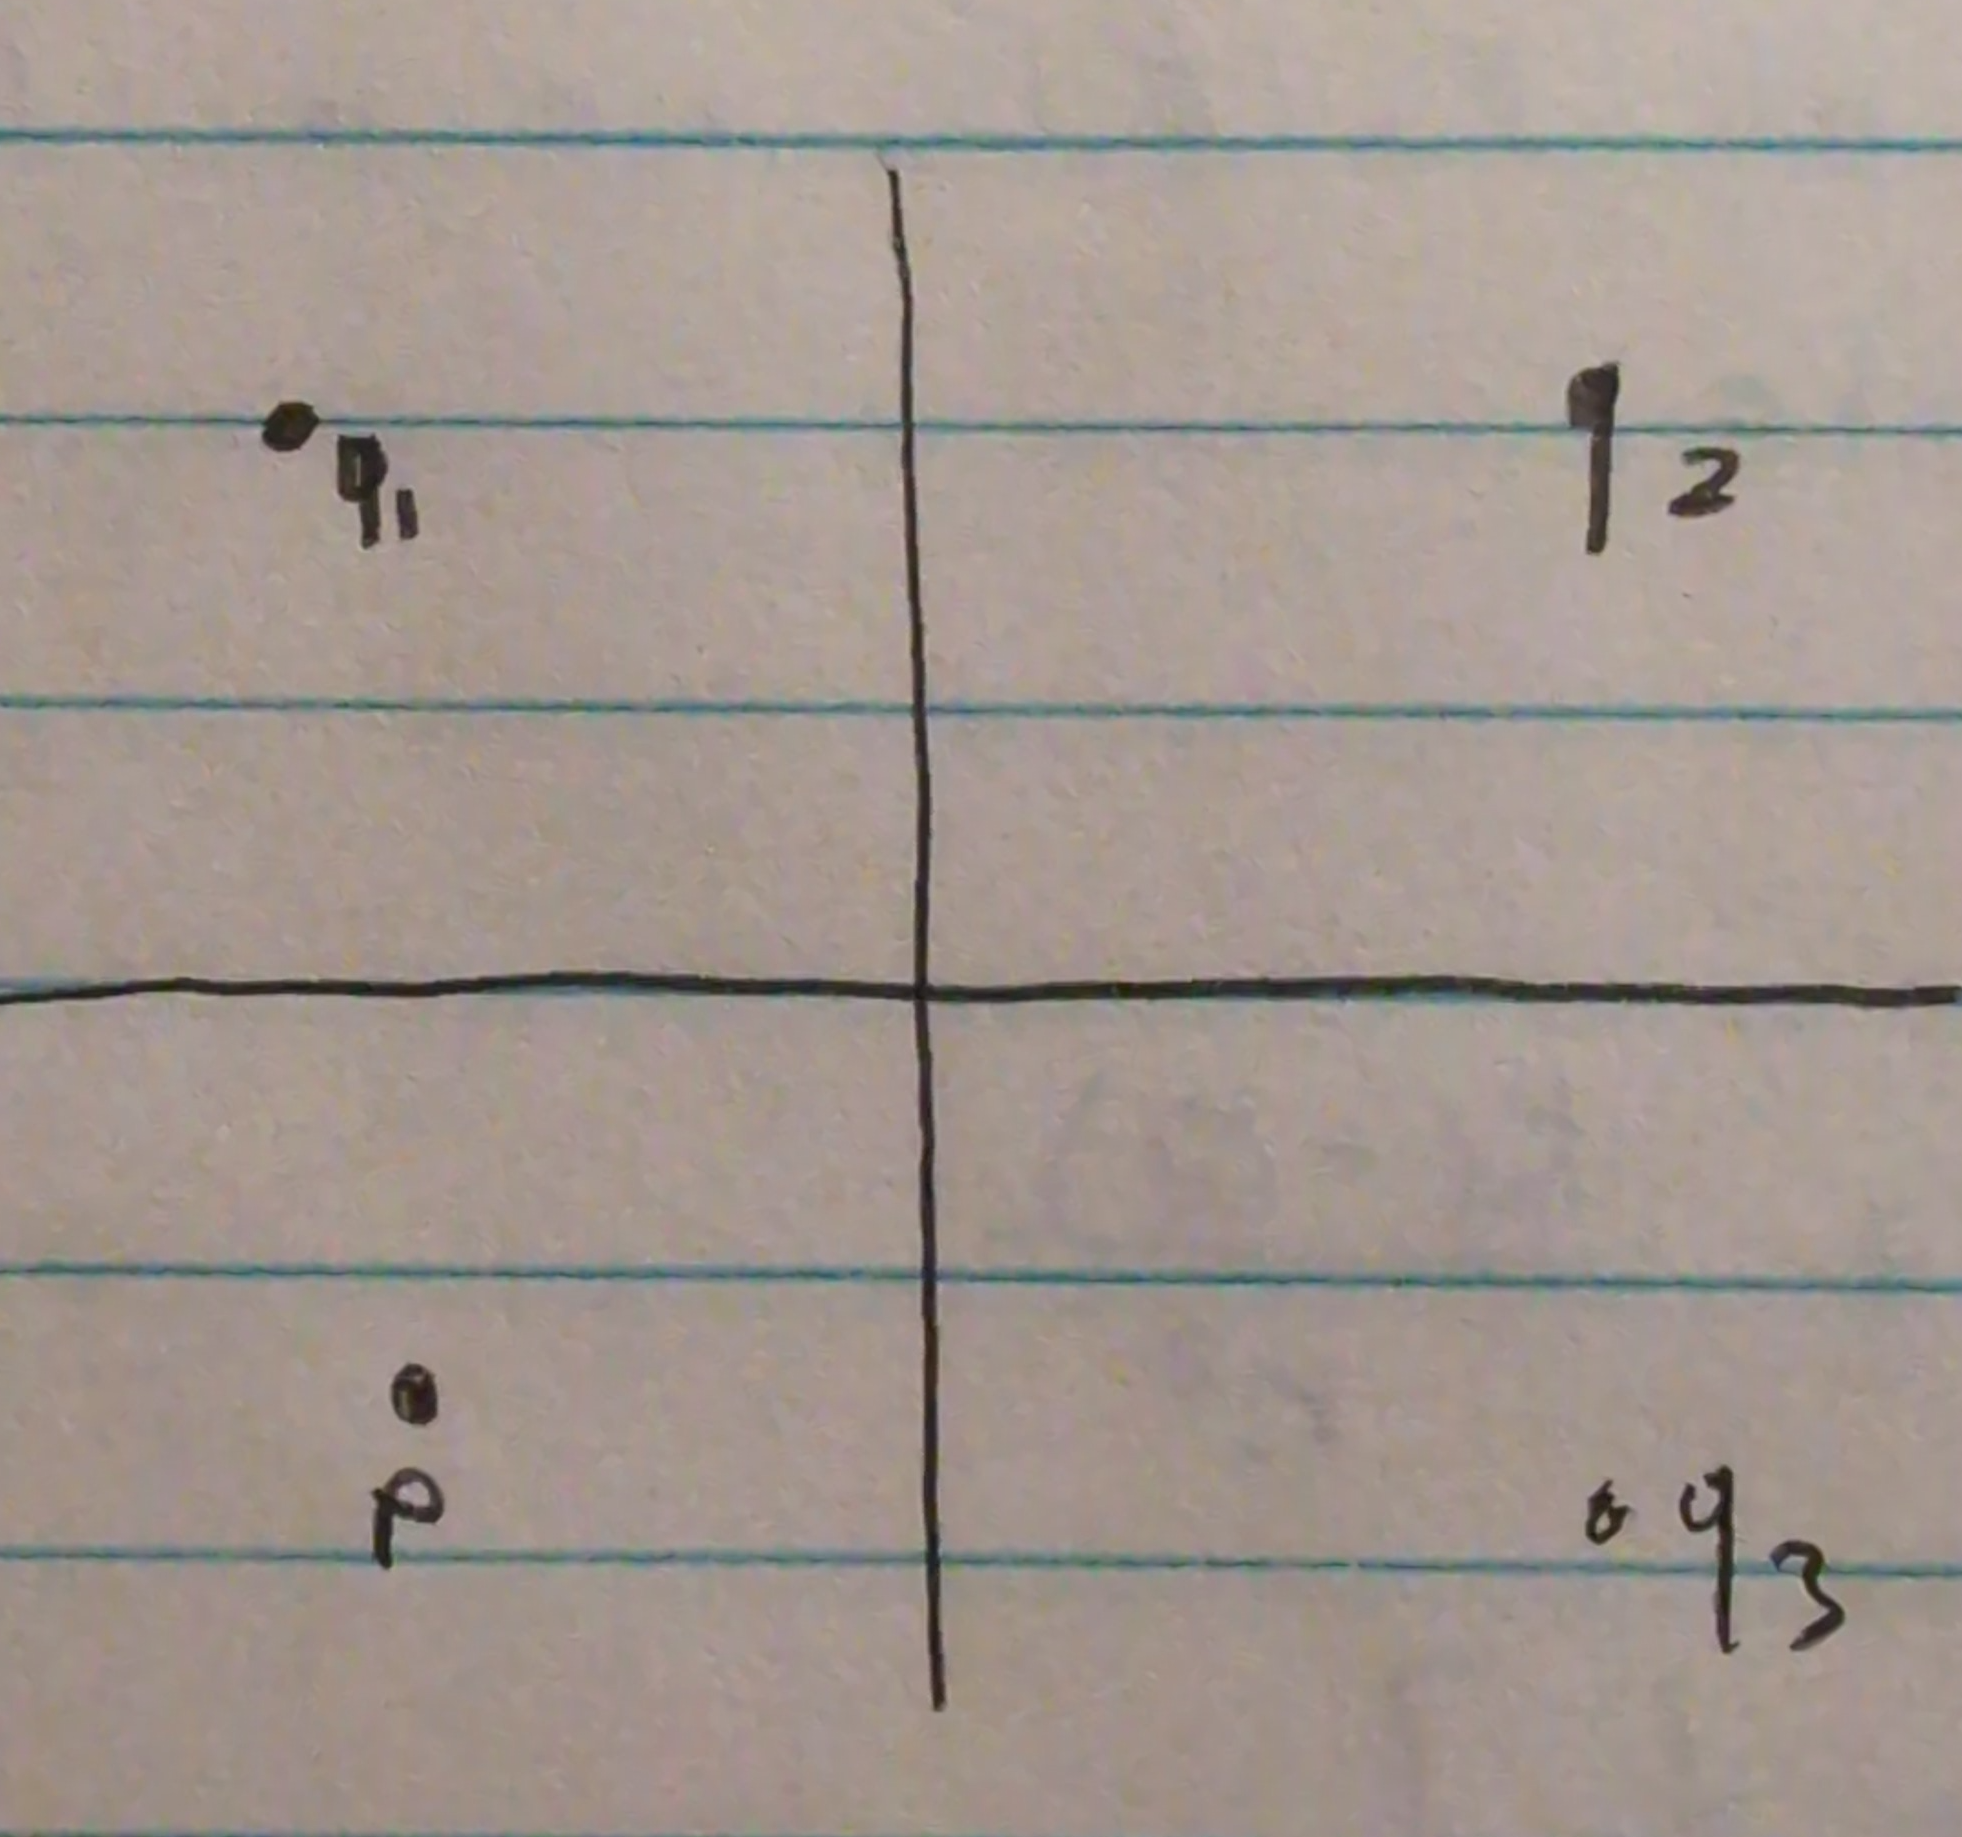 q1
q2
p
q3